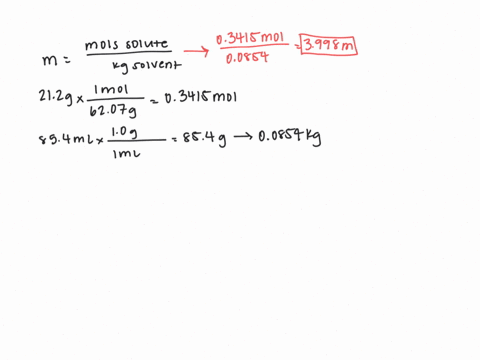 m = mols solute / kg solvent → 0.3415 mol / 0.0854 = 3.998 m
21.2g × 1 mol / 62.07g = 0.3415 mol
85.4 mL × 1.0g / 1mL = 85.4g → 0.0854 kg